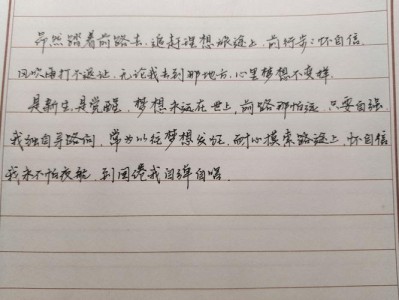 昂然踏着前路去，追赶理想旅途上，前行步步怀自信，
风吹雨打不退让，无论我去到那地方，心里梦想不变样，
是新生，是觉醒，梦想永远在世上，前路那怕远，只要自强
我独自寻路向，常为以往梦想发狂，耐心摸索路途上，怀自信
我永不怕夜航，到困倦我自弹自唱．